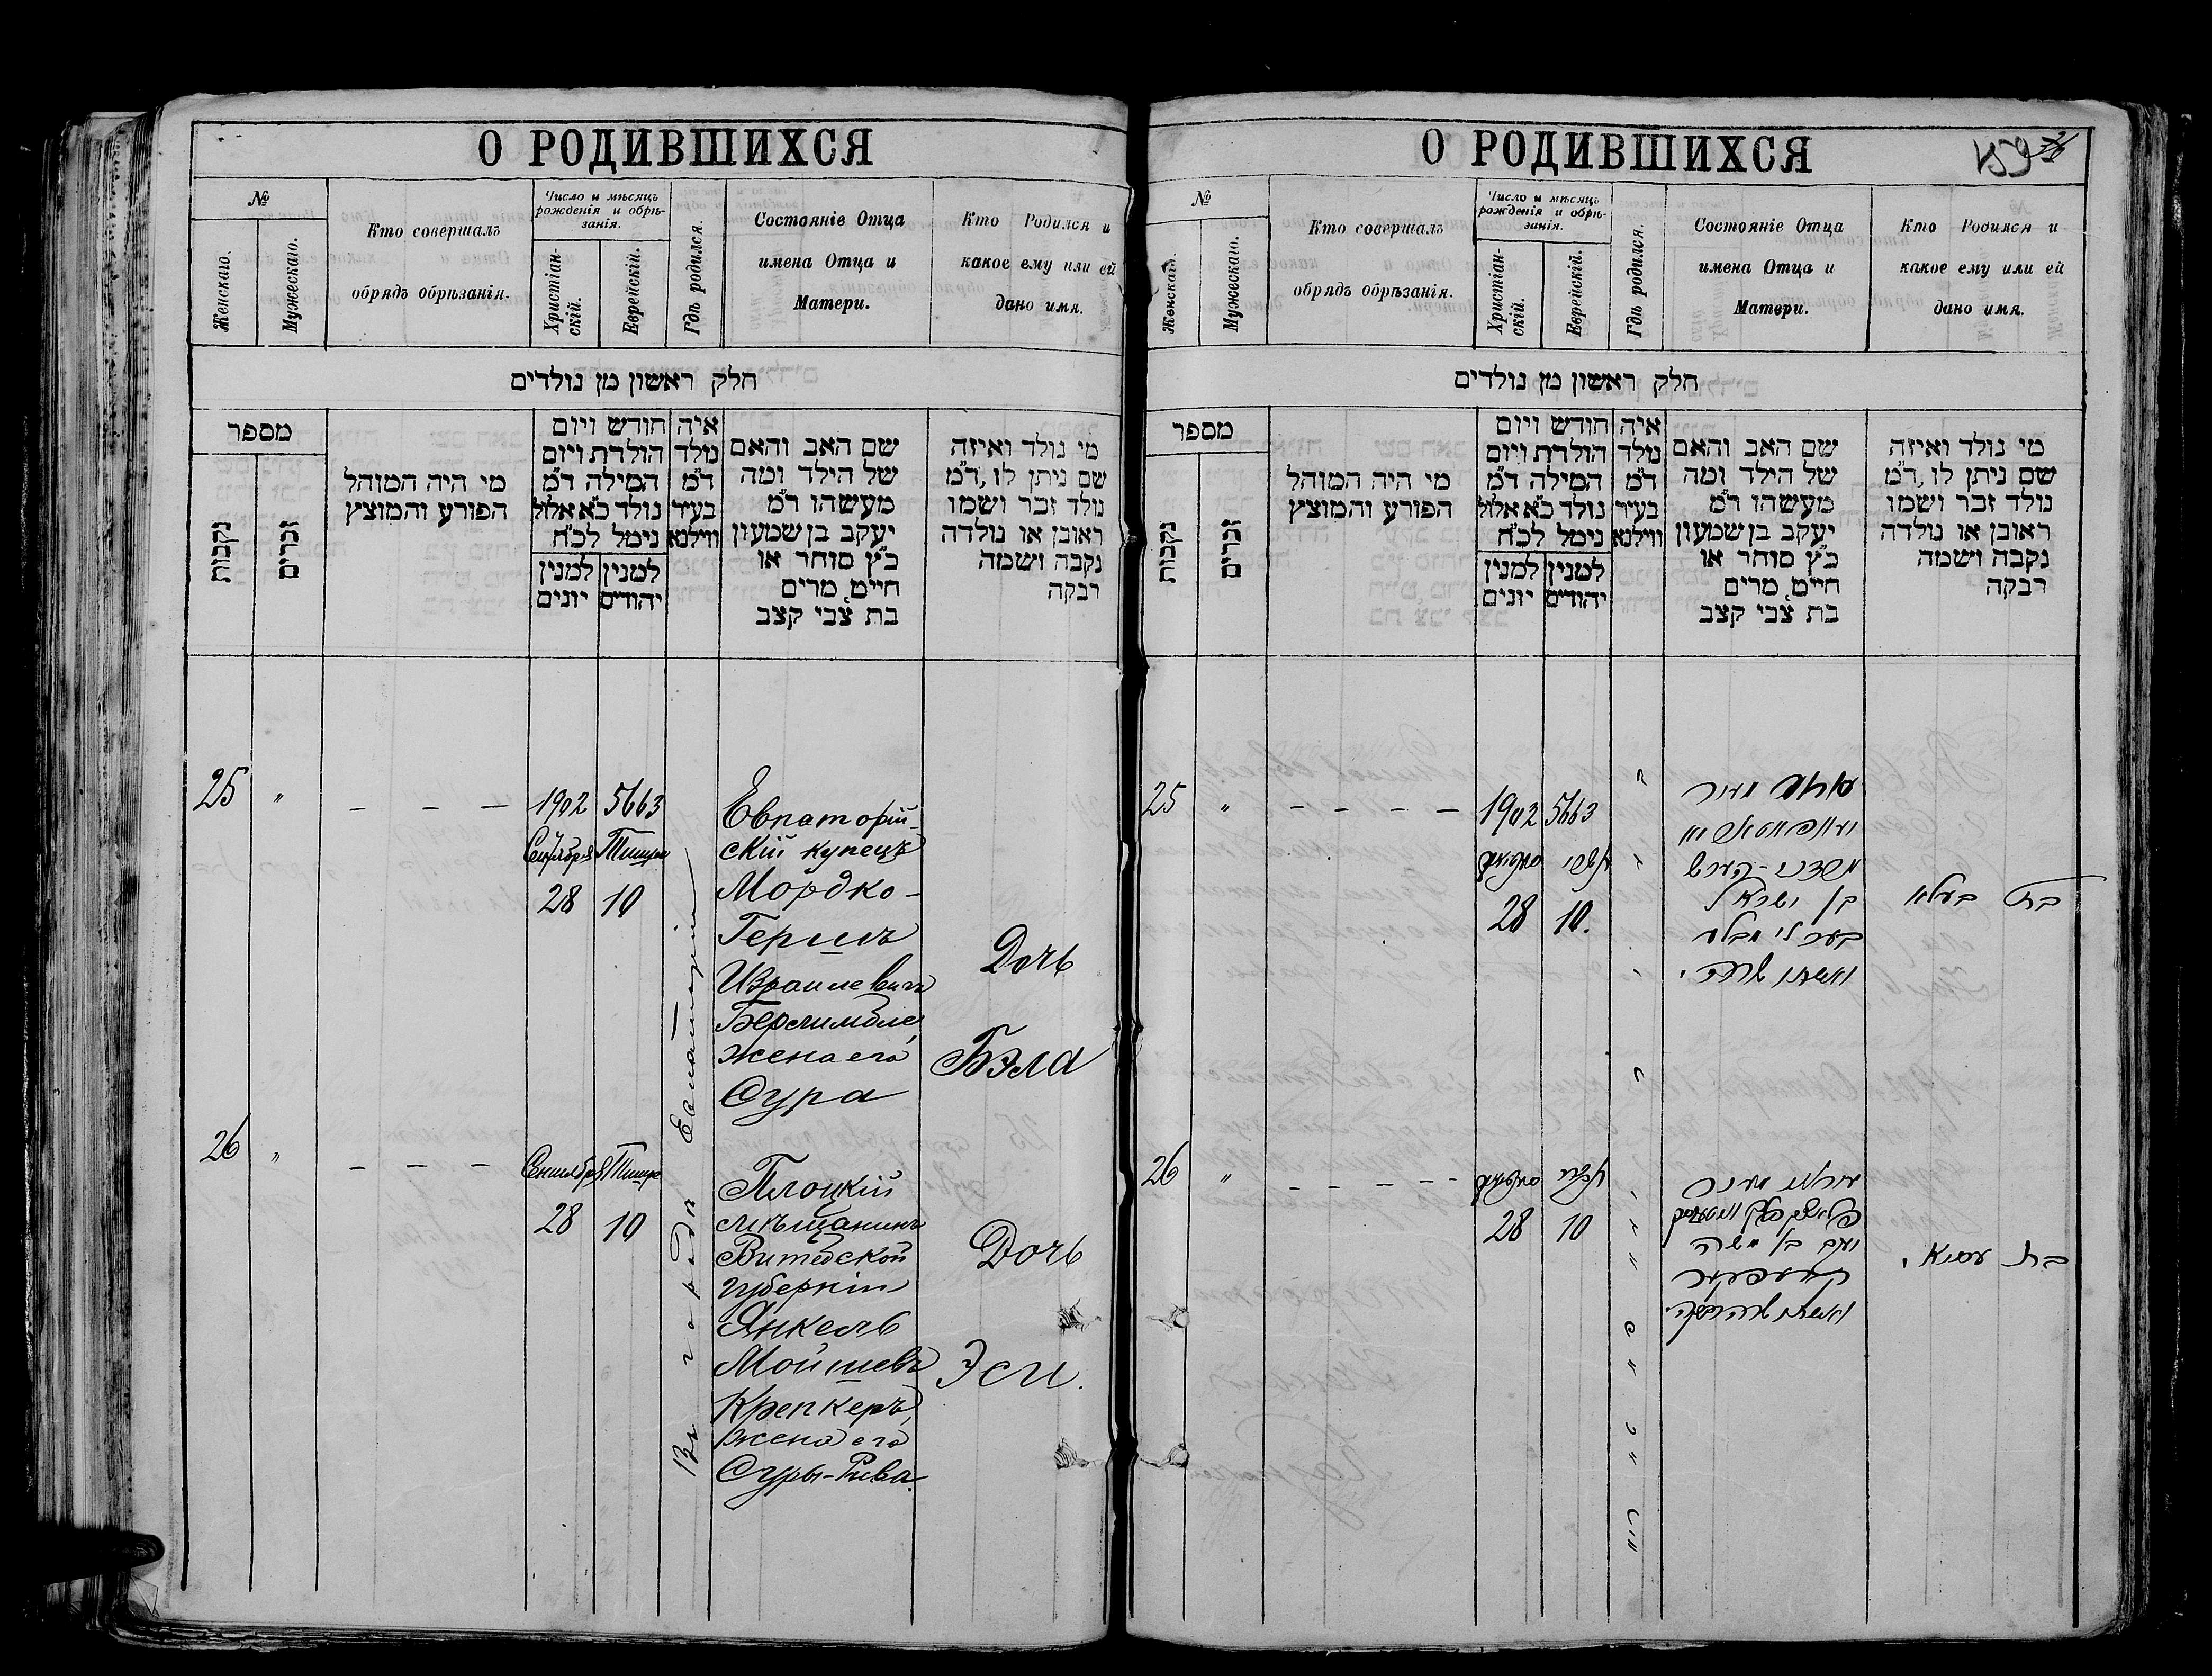 О РОДИВШИХСЯ
№
Женскаго.
Мужескаго.
Кто совершалъ
обрядъ обрѣзанія.
Число и мѣсяцъ
рожденія и обрѣ-
занія.
Христіан-
скій.
Еврейскій.
Гдѣ родился.
Состояніе Отца
имена Отца и
Матери.
Кто Родился и
какое ему или ей
дано имя.
חלק ראשון מן נולדים
מספר
נקבות
זכרים
מי היה המוהל
הפורע והמוצץ
חודש ויום
הולדת ויום
המילה ד״מ
נולד כ״א אלול
נימל לכ״ח
למנין
יונים
למנין
יהודים
איה
נולד
ד״מ
בעיר
ווילנא
שם האב והאם
של הילד ומה
מעשהו ד״מ
יעקב בן שמעון
כ״ץ סוחר או
חייט, מרים
בת צבי קצב
מי נולד ואיזה
שם ניתן לו, ד״מ
נולד זכר ושמו
ראובן או נולדה
נקבה ושמה
רבקה
25 " — — — 1902 5663
Сентября Тишре
28 10
Въ городѣ Евпаторіи
Евпаторій-
скій купецъ
Мордко-
Гершъ
Израилевичъ
жена его
Сура
Дочь
Бэла
26 " — — — Сентября Тишре
28 10
Плоцкій
мѣщанинъ
Витебской
губерніи
Янкель
Мойшевъ
Крепкеръ,
жена его
Суры-Рива.
Дочь
Эси.
О РОДИВШИХСЯ
159
№
Женскаго.
Мужескаго.
Кто совершалъ
обрядъ обрѣзанія.
Число и мѣсяцъ
рожденія и обрѣ-
занія.
Христіан-
скій.
Еврейскій.
Гдѣ родился.
Состояніе Отца
имена Отца и
Матери.
Кто Родился и
какое ему или ей
дано имя.
חלק ראשון מן נולדים
מספר
נקבות
זכרים
מי היה המוהל
הפורע והמוצץ
חודש ויום
הולדת ויום
המילה ד״מ
נולד כ״א אלול
נימל לכ״ח
למנין
יונים
למנין
יהודים
איה
נולד
ד״מ
בעיר
ווילנא
שם האב והאם
של הילד ומה
מעשהו ד״מ
יעקב בן שמעון
כ״ץ סוחר או
חייט, מרים
בת צבי קצב
מי נולד ואיזה
שם ניתן לו, ד״מ
נולד זכר ושמו
ראובן או נולדה
נקבה ושמה
רבקה
25 " — — — — — 1902 5663
תשרי
28 10.
מרדכי-הערש
בן ישראל
ואשתו שרה.
בת בעלא
26 " — — — — — תשרי
28 10
בן משה
קרעפקער
בת עסיא.